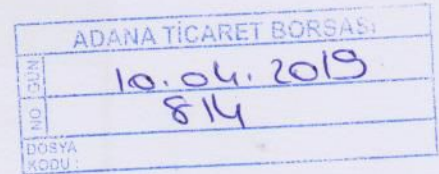 ADANA TİCARET BORSASI
GÜN 10.04.2019
NO 814
DOSYA
KODU :